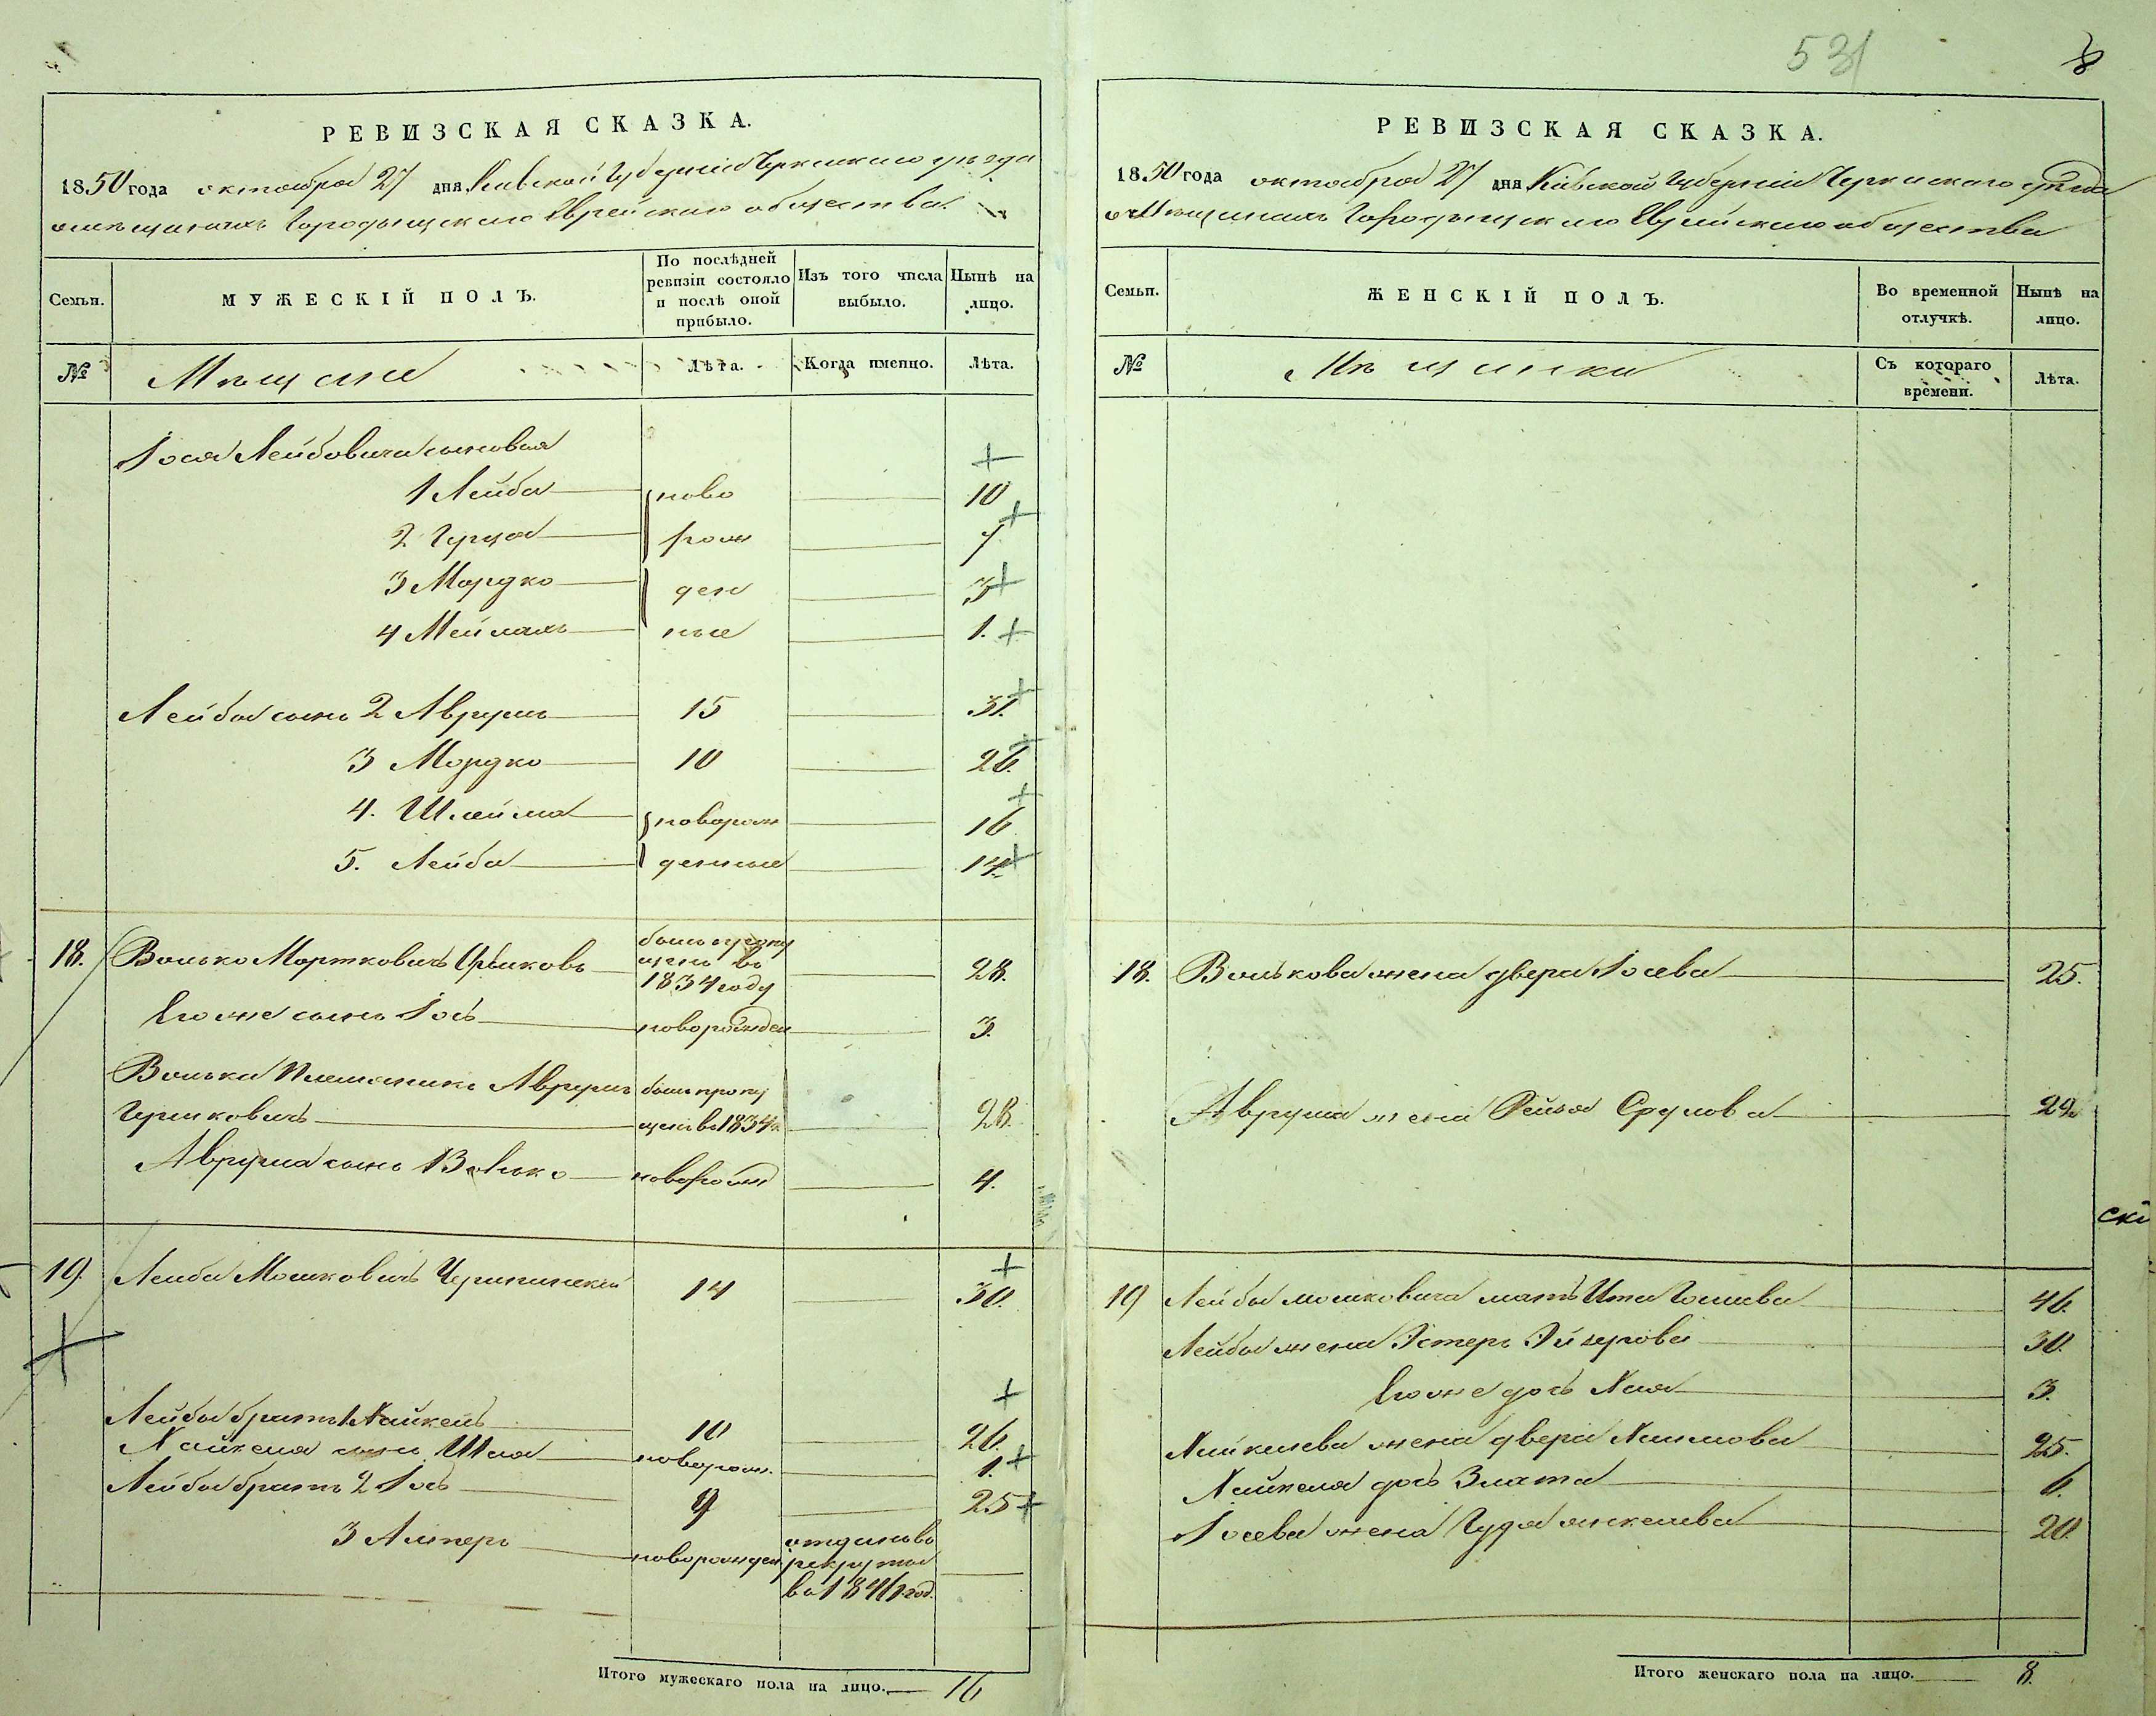 531
8
РЕВИЗСКАЯ СКАЗКА.
1850 года октября 27 дня Киевской Губерніи Черкаскаго уезда
о мещанахъ Городыщскаго Еврейскаго общества.
Семьи.
МУЖЕСКІЙ ПОЛЪ.
По послѣдней ревизіи состояло и послѣ оной прибыло.
Изъ того числа выбыло.
Нынѣ на лицо.
№
Мещане
Лѣта.
Когда именно.
Лѣта.
Іося Лейбовича сыновья
1 Лейба ново 10
2 Герша рож 7
3 Мордко ден 3
4 Мейлахъ ные 1.
Лейбы сынъ 2 Аврумъ 15 31.
3 Мордко 10 26.
4. Шлейма новорож 16
5. Лейба денные 14.
18. Волько Мортковичъ былъ пропущенъ въ 1834 году 28.
Его же сынъ Іось новорожден 3.
Волька племянникъ Аврумъ былъ пропу
Гершковичъ щенъ въ 1834 28.
Аврума сынъ 1 Волько новорожд 4.
19. Лейба Мошковичъ 14 30.
Лейбы братъ 1 Хайкель 10 26.
Хайкеля сынъ Шая новорож. 1.
Лейбы братъ 2 Іось 9 25
3 Альтеръ новорожден отданъ во рекруты въ 1846 год.
Итого мужескаго пола на лицо. 16
РЕВИЗСКАЯ СКАЗКА.
1850 года октября 27 дня Кіевской Губерніи Черкаскаго уѣзда
о Мещанахъ Городыщскаго Еврейскаго общества
Семьи.
ЖЕНСКІЙ ПОЛЪ.
Во временной отлучкѣ.
Нынѣ на лицо.
№
Мещанки
Съ котораго времени.
Лѣта.
18. Волькова жена двера Іосева 25.
Аврума жена Рейза Срулова 24.
19 Лейбы мошковича мать Ита 46.
Лейбы жена Эстеръ 30.
Его же дочь Хая 3.
Хайкилева жена двера Хаимова 25.
Хайкеля дочь Злата 6.
Іосева жена Гудя 20.
Итого женскаго пола на лицо. 8.
скі